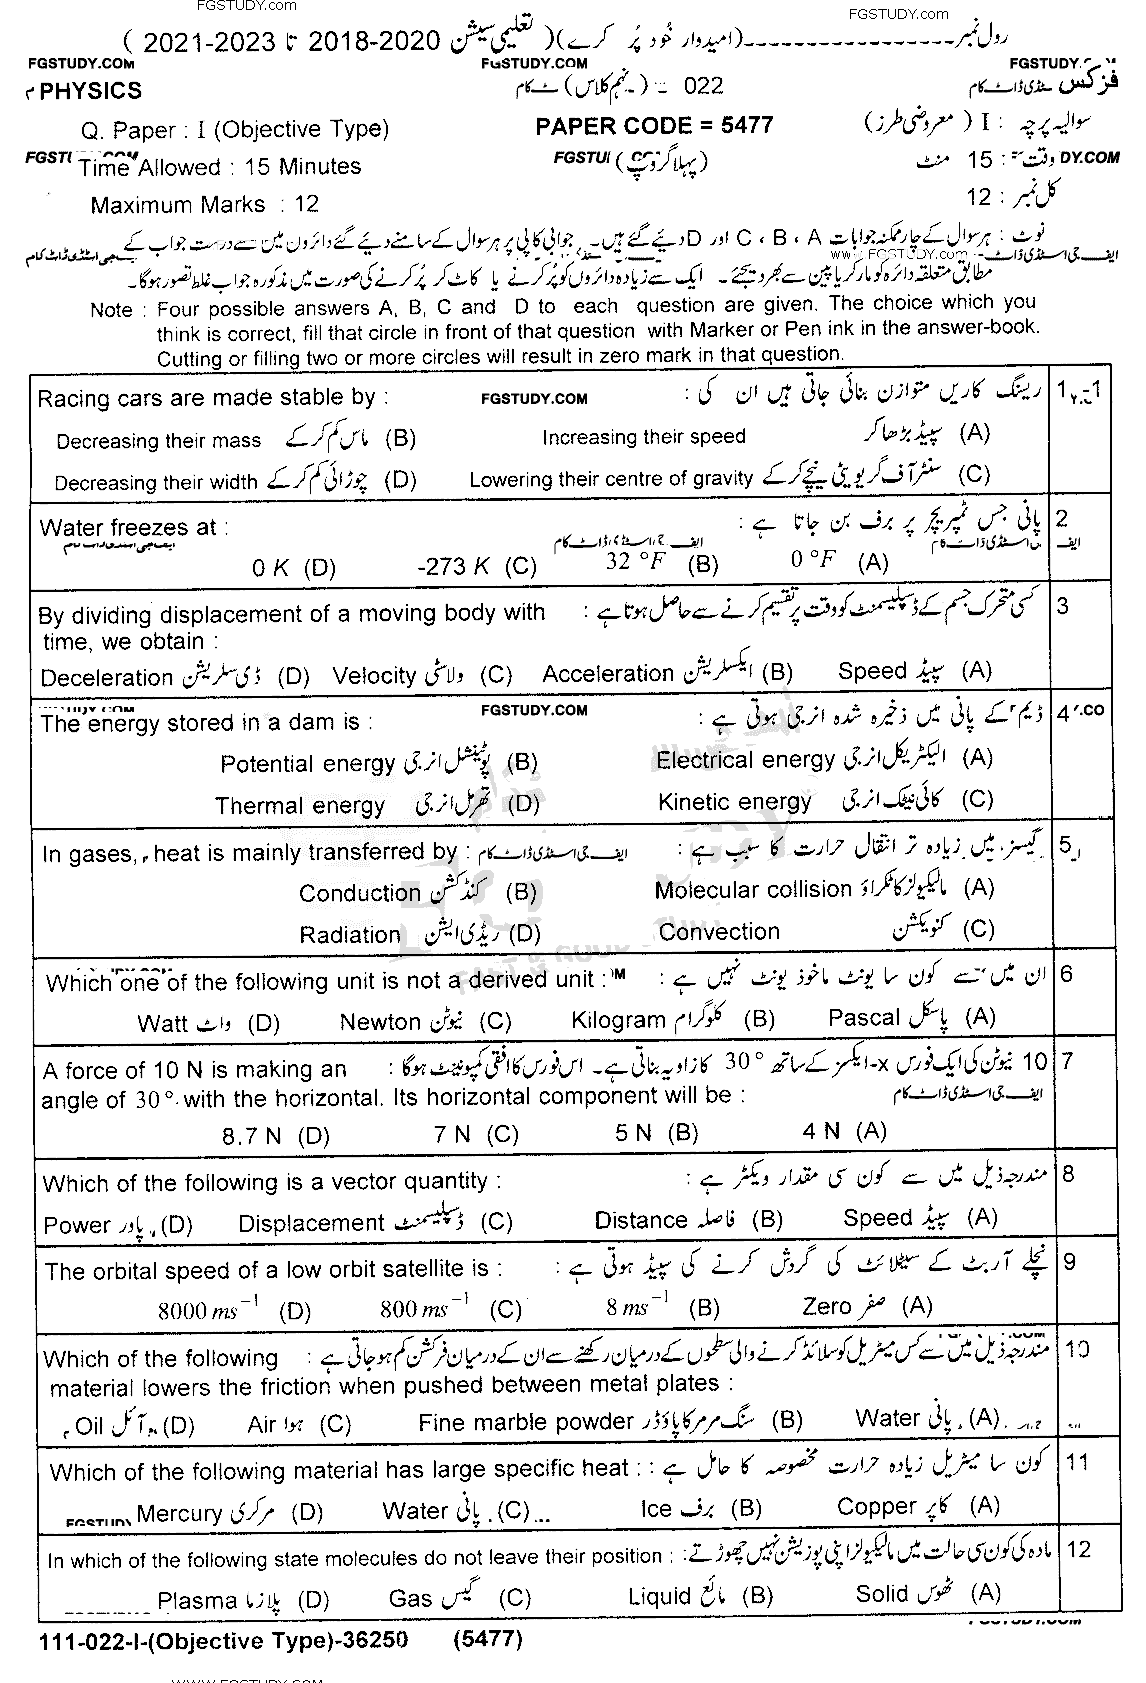 FGSTUDY.com
FGSTUDY.com
رول نمبر-----------------(امیدوار خود پُر کرے)( تعلیمی سیشن 2020-2018 تا 2023-2021 )
FGSTUDY.COM FGSTUDY.COM FGSTUDY.
PHYSICS 022 - (نہم کلاس) فزکس
Q. Paper : I (Objective Type) PAPER CODE = 5477 سوالیہ پرچہ : I ( معروضی طرز )
Time Allowed : 15 Minutes (پہلا گروپ) وقت : 15 منٹ
Maximum Marks : 12 کل نمبر : 12
نوٹ : ہر سوال کے چار ممکنہ جوابات A ، B ، C اور D دیئے گئے ہیں۔ جوابی کاپی پر ہر سوال کے سامنے دیئے گئے دائروں میں سے درست جواب کے
www.FGSTUDY.com
مطابق متعلقہ دائرہ کو مارکر یا پین سے بھر دیجئے۔ ایک سے زیادہ دائروں کو پُر کرنے یا کاٹ کر پُر کرنے کی صورت میں مذکورہ جواب غلط تصور ہوگا۔
Note : Four possible answers A, B, C and D to each question are given. The choice which you
think is correct, fill that circle in front of that question with Marker or Pen ink in the answer-book.
Cutting or filling two or more circles will result in zero mark in that question.
Racing cars are made stable by : FGSTUDY.COM ریسنگ کاریں متوازن بنائی جاتی ہیں ان کی : 1-1
Decreasing their mass ماس کم کر کے (B) Increasing their speed سپیڈ بڑھا کر (A)
Decreasing their width چوڑائی کم کر کے (D) Lowering their centre of gravity سنٹر آف گریویٹی نیچے کر کے (C)
Water freezes at : پانی جس ٹمپریچر پر برف بن جاتا ہے : 2
ایف جی اسٹڈی ڈاٹ کام
0 K (D) -273 K (C) 32 °F (B) 0 °F (A)
By dividing displacement of a moving body with کسی متحرک جسم کے ڈسپلیسمنٹ کو وقت پر تقسیم کرنے سے حاصل ہوتا ہے : 3
time, we obtain :
Deceleration ڈی سلریشن (D) Velocity ولاسٹی (C) Acceleration ایکسلریشن (B) Speed سپیڈ (A)
The energy stored in a dam is : FGSTUDY.COM ڈیم کے پانی میں ذخیرہ شدہ انرجی ہوتی ہے : 4
Potential energy پوٹینشل انرجی (B) Electrical energy الیکٹریکل انرجی (A)
Thermal energy تھرمل انرجی (D) Kinetic energy کائی نیٹک انرجی (C)
In gases, heat is mainly transferred by : ایف جی اسٹڈی ڈاٹ کام گیسز میں زیادہ تر انتقال حرارت کا سبب ہے : 5
Conduction کنڈکشن (B) Molecular collision مالیکیولز کا ٹکراؤ (A)
Radiation ریڈی ایشن (D) Convection کنویکشن (C)
Which one of the following unit is not a derived unit : ان میں سے کون سا یونٹ ماخوذ یونٹ نہیں ہے : 6
Watt واٹ (D) Newton نیوٹن (C) Kilogram کلوگرام (B) Pascal پاسکل (A)
A force of 10 N is making an 10 نیوٹن کی ایک فورس x-ایکسز کے ساتھ 30° کا زاویہ بناتی ہے۔ اس فورس کا افقی کمپونینٹ ہوگا : 7
angle of 30° with the horizontal. Its horizontal component will be : ایف جی اسٹڈی ڈاٹ کام
8.7 N (D) 7 N (C) 5 N (B) 4 N (A)
Which of the following is a vector quantity : مندرجہ ذیل میں سے کون سی مقدار ویکٹر ہے : 8
Power پاور (D) Displacement ڈسپلیسمنٹ (C) Distance فاصلہ (B) Speed سپیڈ (A)
The orbital speed of a low orbit satellite is : نچلے آربٹ کے سیٹلائٹ کی گردش کرنے کی سپیڈ ہوتی ہے : 9
8000 ms⁻¹ (D) 800 ms⁻¹ (C) 8 ms⁻¹ (B) Zero صفر (A)
Which of the following مندرجہ ذیل میں سے کس میٹریل کو سلائڈ کرنے والی سطحوں کے درمیان رکھنے سے ان کے درمیان فرکشن کم ہو جاتی ہے : 10
material lowers the friction when pushed between metal plates :
Oil آئل (D) Air ہوا (C) Fine marble powder سنگ مرمر کا پاؤڈر (B) Water پانی (A)
Which of the following material has large specific heat : کون سا میٹریل زیادہ حرارت مخصوصہ کا حامل ہے : 11
Mercury مرکری (D) Water پانی (C) Ice برف (B) Copper کاپر (A)
In which of the following state molecules do not leave their position : مادہ کی کون سی حالت میں مالیکیولز اپنی پوزیشن نہیں چھوڑتے : 12
Plasma پلازما (D) Gas گیس (C) Liquid مائع (B) Solid ٹھوس (A)
111-022-I-(Objective Type)-36250 (5477)